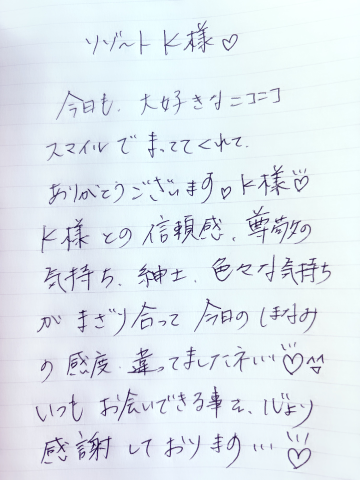 リゾート K様♡
今日も、大好きなニコニコ
スマイルでまっててくれて、
ありがとうございます♡K様♡
K様との信頼感、尊敬の
気持ち、紳士、色々な気持ち
がまざり合って今日のほなみ
の感度、違ってましたネ…♡^^
いつもお会いできる事を、心より
感謝しております…♡